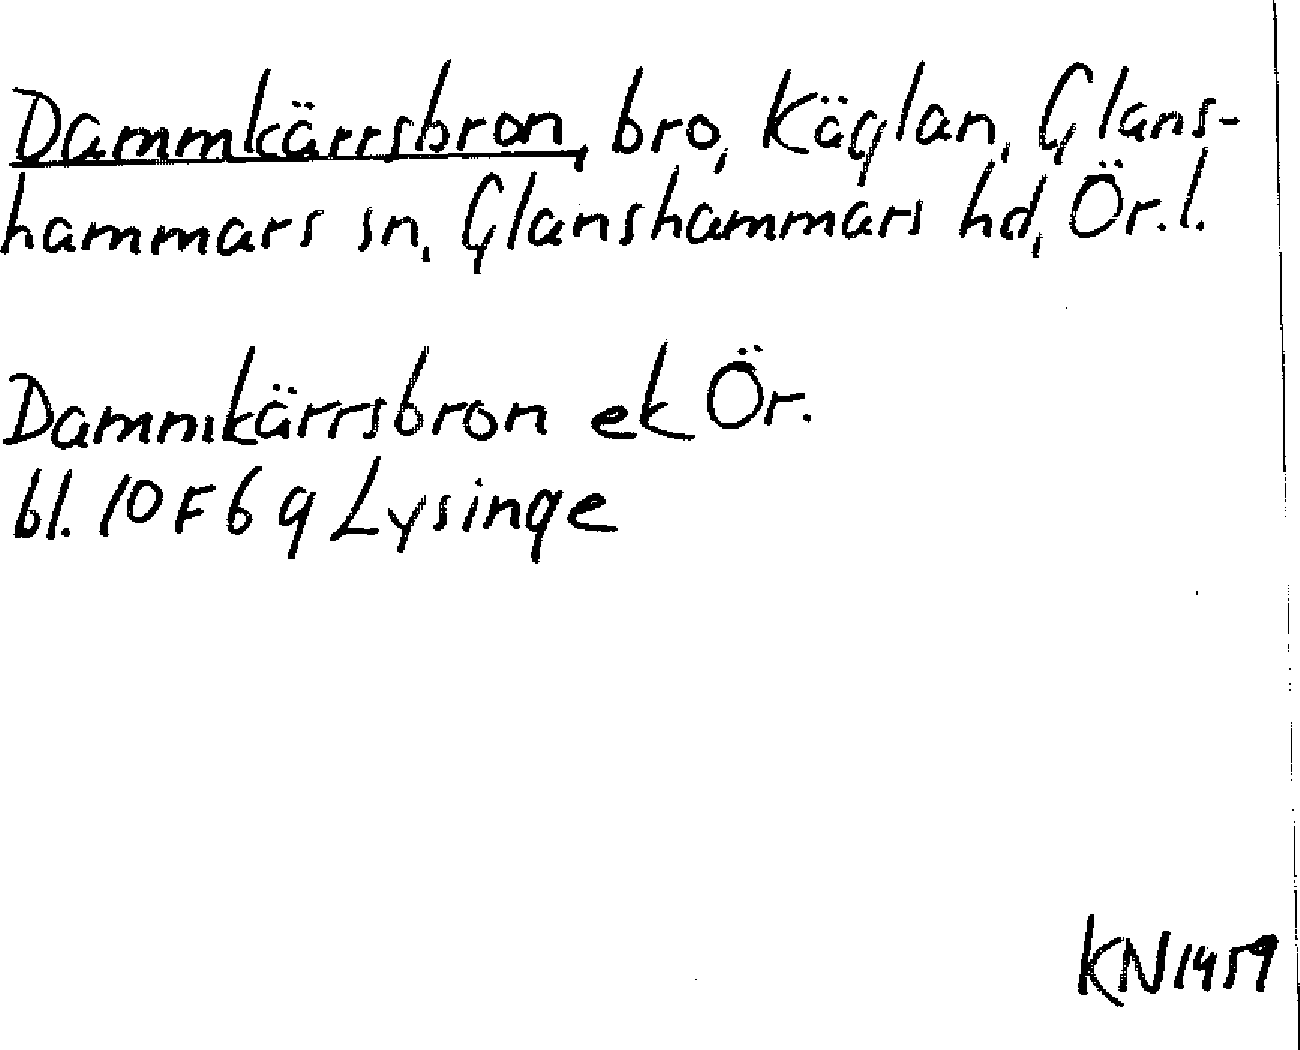 Dammkärrsbron, bro, Käglan, Glans-
hammars sn, Glanshammars hd, Ör. l.
Dammkärrsbron ek Ör.
bl. 10 F 6 g Lysinge
KN 1959